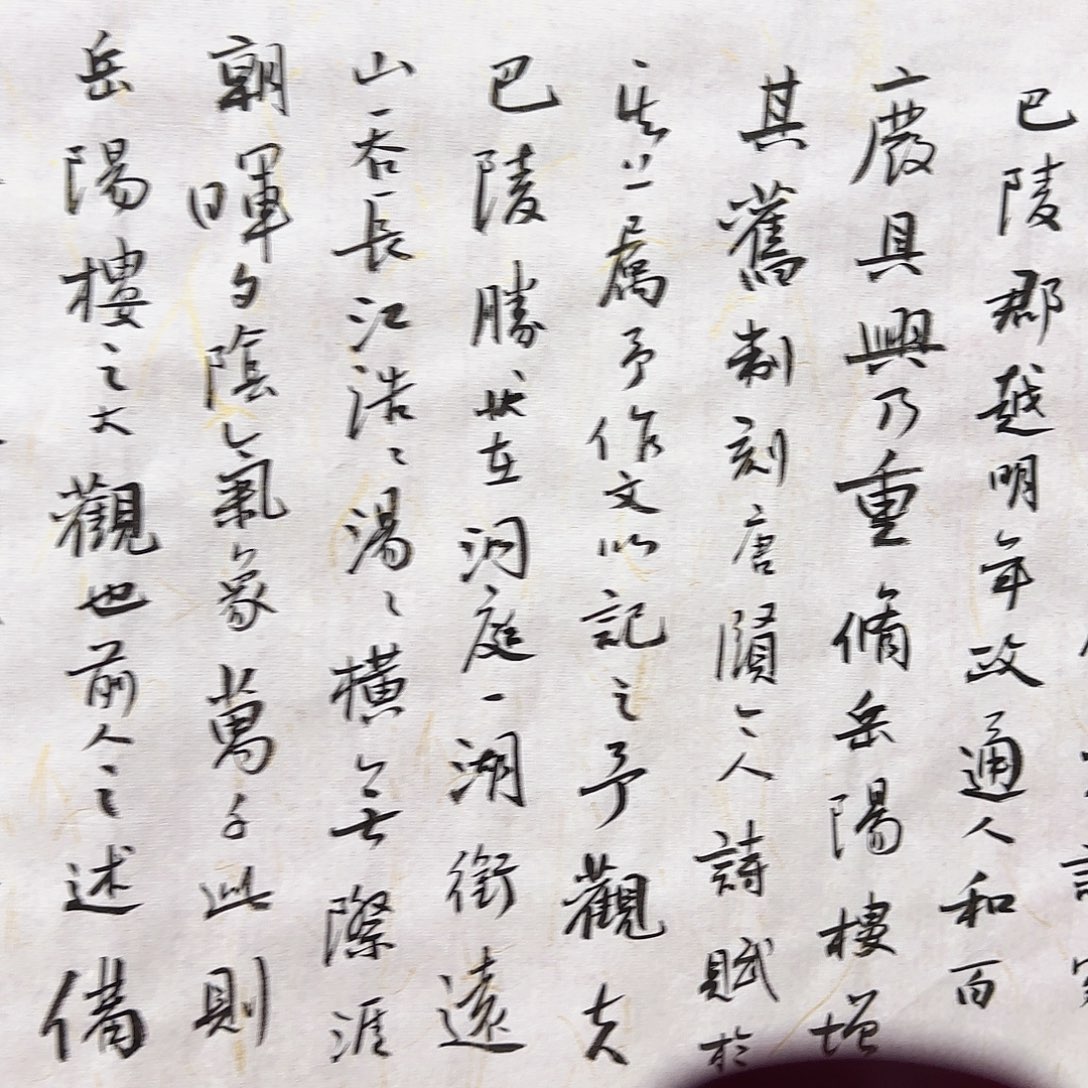 巴陵郡越明年政通人和百
廢具興乃重脩岳陽樓增
其舊制刻唐賢今人詩賦於
其上属予作文以記之予觀夫
巴陵勝狀在洞庭一湖銜遠
山吞長江浩〻湯〻橫無際涯
朝暉夕陰氣象萬千此則
岳陽樓之大觀也前人之述備